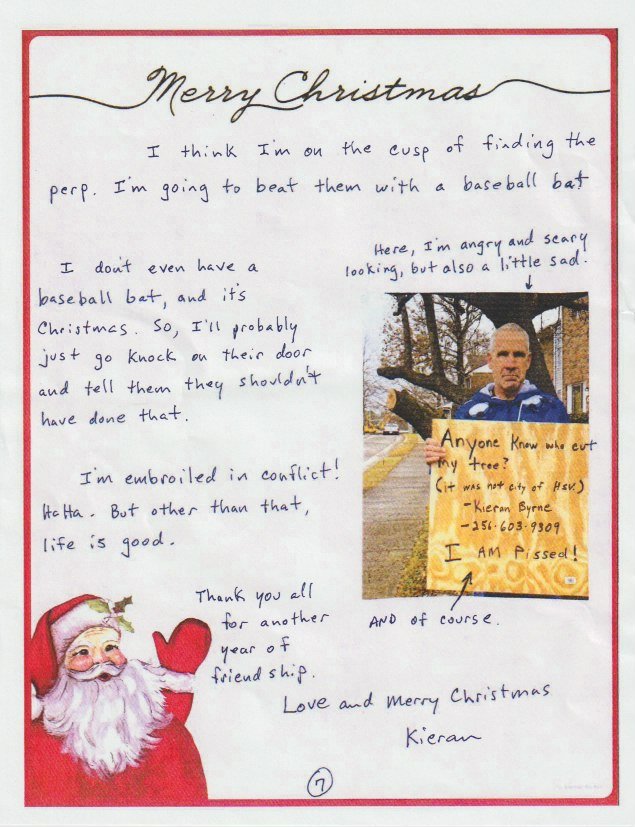 Merry Christmas
I think I'm on the cusp of finding the
perp. I'm going to beat them with a baseball bat
Here, I'm angry and scary
looking, but also a little sad.
I don't even have a
baseball bat, and it's
Christmas. So, I'll probably
just go knock on their door
and tell them they shouldn't
have done that.
Anyone know who cut
my tree?
(it was not city of HSV.)
-Kieran Byrne
-256-603-9309
I AM Pissed!
I'm embroiled in conflict!
HaHa. But other than that,
life is good.
AND of course.
Thank you all
for another
year of
friendship.
Love and Merry Christmas
Kieran
7